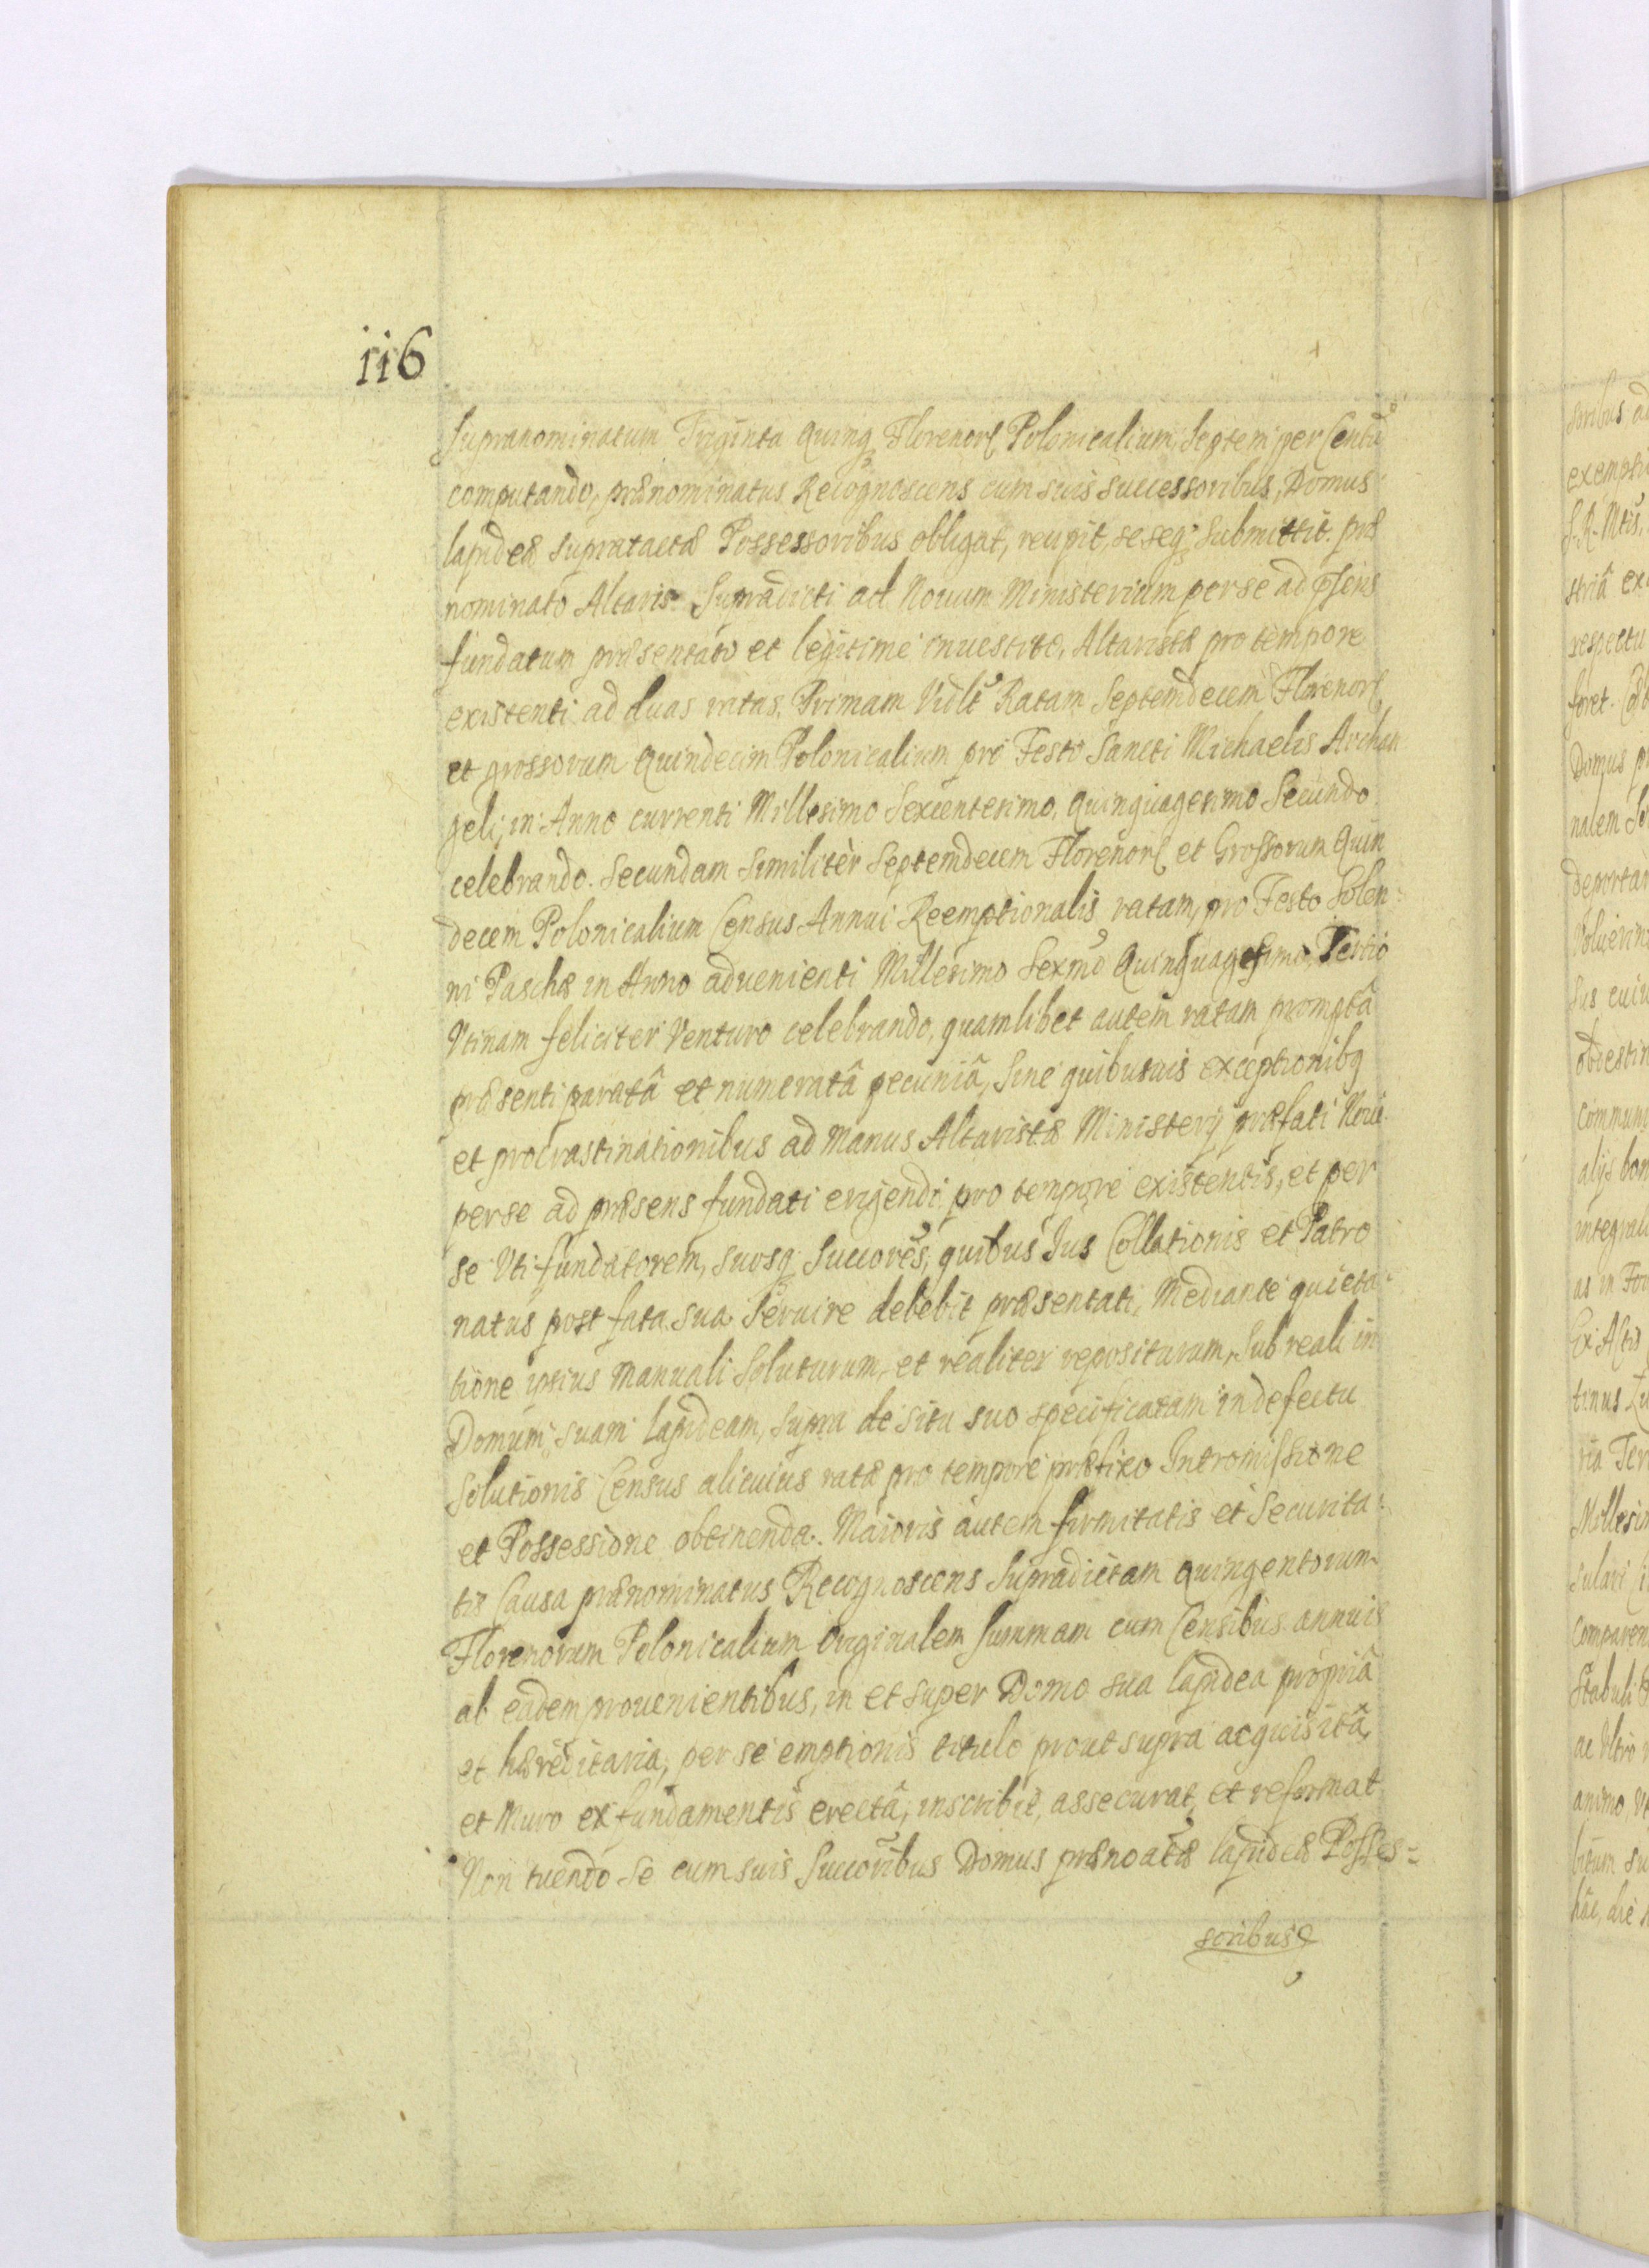 116
Supranominatum Triginta Quinq₃ Florenorꝭ Polonicalium, Septem per Centũ
computando, prænominatus Recognoscens cum suis successoribus, Domus
lapideæ supratactæ Possessoribus obligat, recipit, seseq₃ submittit. præ
nominato Altaris Supradicti ad Nouum Ministerium per se ad pñsens
fundatum præsentato et legitimè inuestito, Altaristæ pro tempore
existenti ad duas ratas, Primam Vidlt Ratam Septemdecem Florenorꝭ
et grossorum Quindecim Polonicalium pro Festo Sancti Michaelis Archan
geli, in Anno currenti Millesimo Sexcentesimo, Quinquagesimo Secundo
celebrando. Secundam similitèr Septemdecem Florenorꝭ et Grossorum Quin
decem Polonicalium Census Annui Reemptionalis ratam, pro Festo Solen-
ni Paschæ in Anno aduenienti Millesimo Sexmo Quinquagesimo, Tertio
Vtinam feliciter Venturo celebrando, quamlibet autem ratam promptâ
præsenti paratâ et numeratâ pecuniâ, Sine quibusuis exceptionibq
et procrastinationibus ad manus Altaristæ Ministerij præfati Noui
per se ad præsens fundati erigendi pro tempore existentis, et per
se Vti fundatorem, suosq Succorẽs, quibus Jus Collationis et Patro
natus post fata sua Seruire debebit præsentati, Mediante quieta-
tione ipsius manuali Soluturum, et realiter repositurum, Sub reali in
Domum suam lapideam, supra de situ suo specificatam in defectu
Solutionis Census alicuius ratæ pro tempore præfixo Intromissione
et Possessione obtinenda. Maioris autem firmitatis et Securita-
tis Causa prænominatus Recognoscens Supradictam Quingentorum
Florenorum Polonicalium Originalem Summam cum Censibus annuis
ab eadem prouenientibus, in et super Domo sua lapidea propriâ
et hæreditaria, per se emptionis titulo prout supra acquisitâ,
et Muro ex fundamentis erectâ, inscribit, assecurat, et reformat
Non tuendo se cum suis Succoribus Domus prænoatæ lapideæ Posses-
soribus